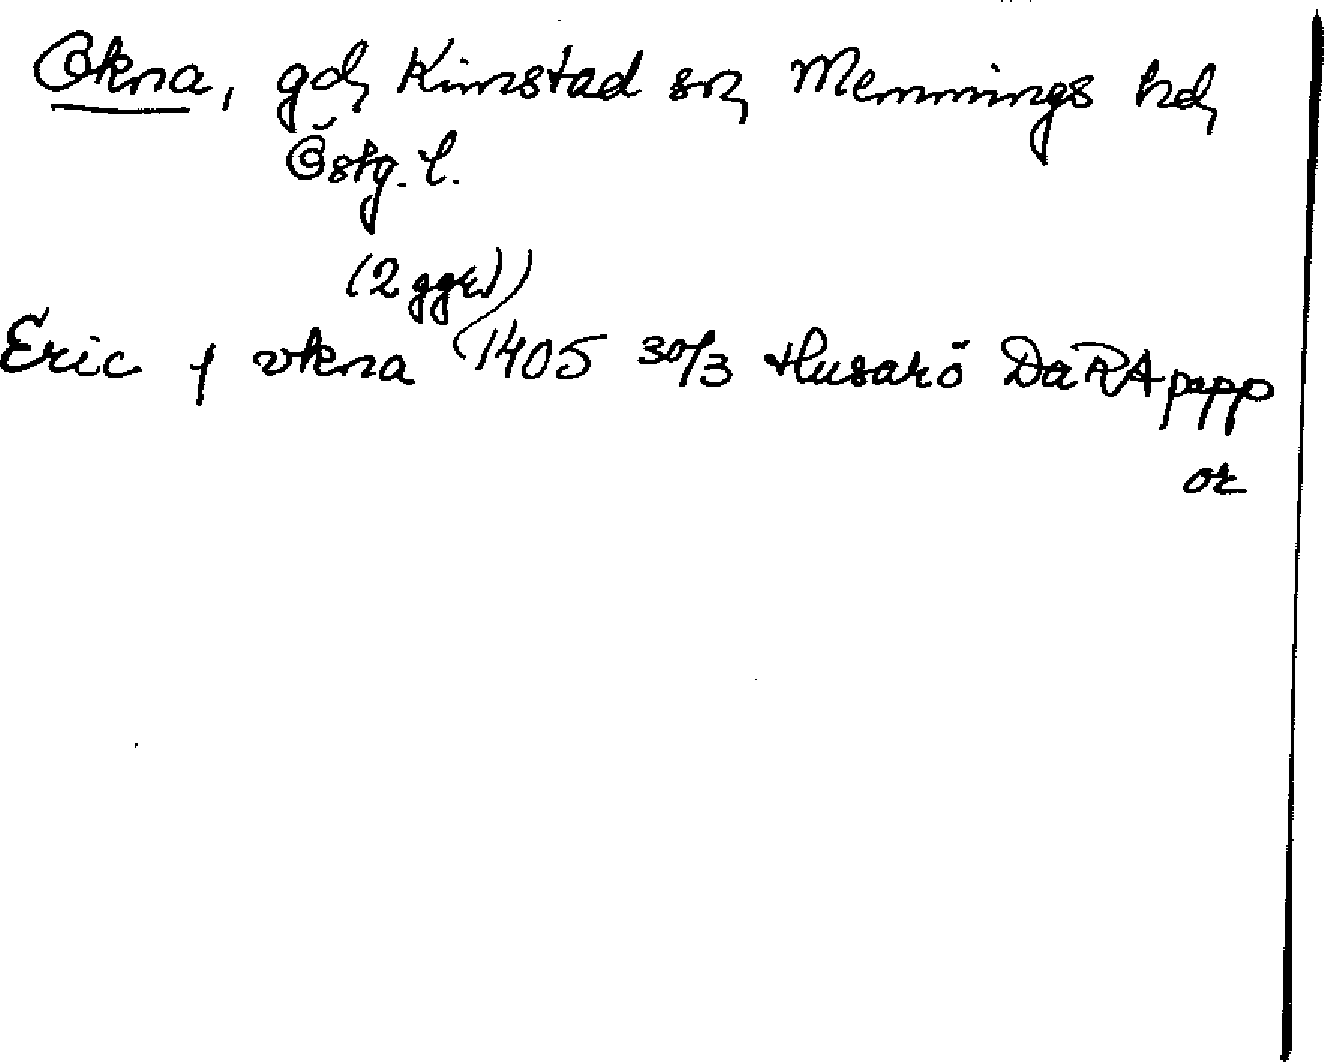 Okna, gd, Kimstad sn, Memmings hd,
Östg. l.
(2 ggr)
Eric j okna 1405 30/3 Husarö Da RA papp
or